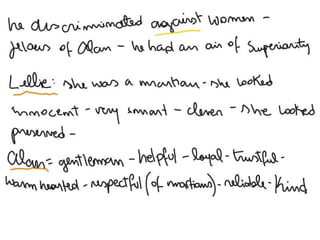 he discriminated against women -
jelous of Alan - he had an air of superiority
Lellie: she was a martian - she looked
innocent - very smart - clever - she looked
preserved -
Alan = gentleman - helpful - loyal - trustful -
warm hearted - respectful (of martians) - reliable - kind